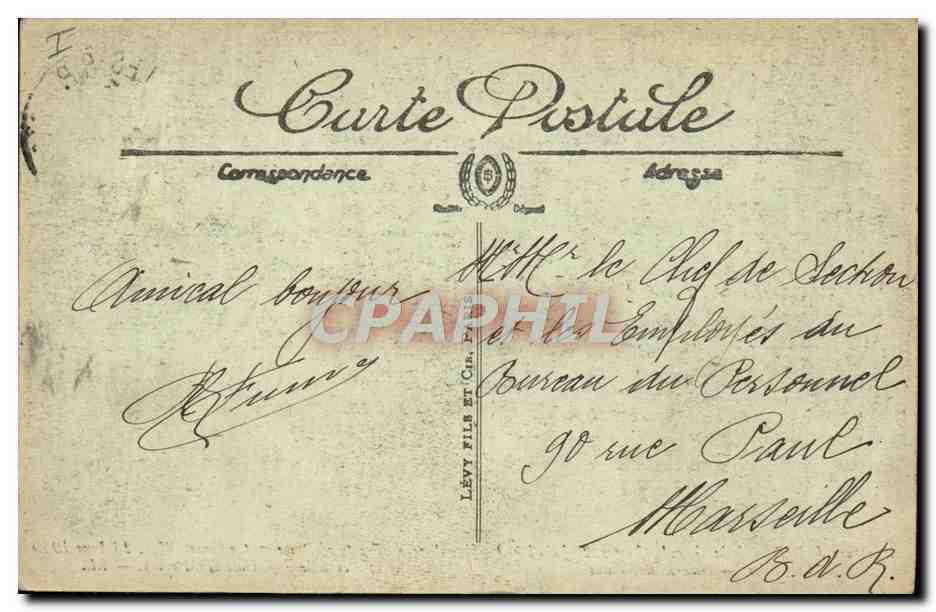 Carte Postale
Correspondance
Adresse
Amical bonjour
Mr Mr le Chef de Section
et les Employés du
Bureau du Personnel
90 rue Paul
Marseille
B. d. R.
LÉVY FILS ET CIE, PARIS
CPAPHIL